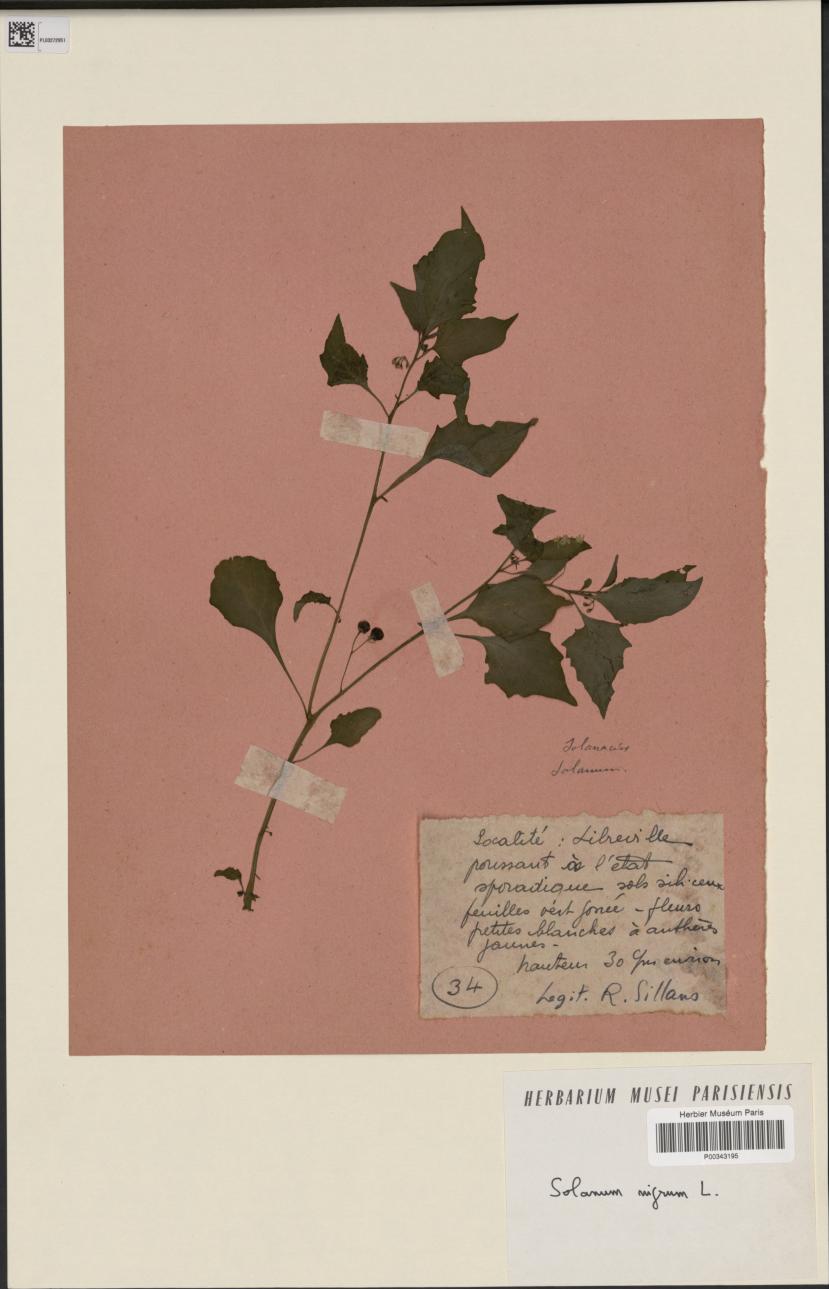 PL00272951
Solanacées
Solanum.
Localité : Libreville
poussant à l'état
sporadique sols siliceux
feuilles vért foncé - fleurs
petites blanches à anthères
jaunes -
hauteur 30 c/m environ
34
Legit. R. Sillans
HERBARIUM MUSEI PARISIENSIS
Herbier Muséum Paris
P00343195
Solanum nigrum L.